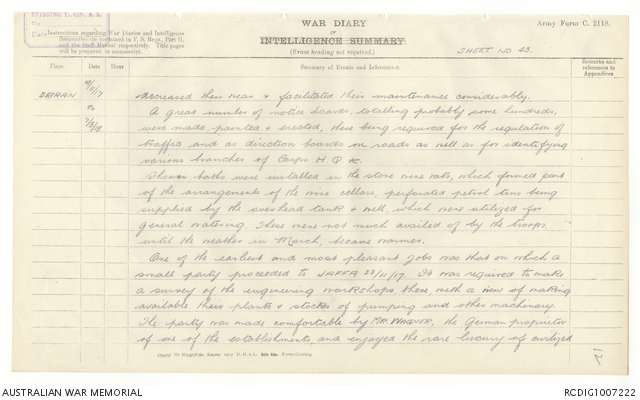 WAR DIARY
OF
INTELLIGENCE SUMMARY
(Erase heading not required).
Army Form C. 2118.
SHEET NO 43.
Instructions regarding War Diaries and Intelligence
Summaries are contained in F. S. Regs., Part II.
and the Staff Manual respectively. Title pages
will be prepared in manuscript.
Place Date Hour Summary of Events and Information Remarks and references to Appendices
DEIRAN
to
decreased their wear & facilitated their maintenance considerably.
A great number of notice boards, totalling probably some hundreds,
were made, painted & erected, these being required for the regulation of
traffic and as direction boards on roads as well as for identifying
various branches of Corps H Q &c.
Shower baths were installed in the stone wine vats, which formed part
of the arrangements of the wine cellars, perforated petrol tins being
supplied by the overhead tank & well, which were utilized for
general watering. These were not much availed of by the troops
until the weather in March, became warmer.
One of the earliest and most pleasant jobs was that on which a
small party proceeded to JAFFA 22/11/17. It was required to make
a survey of the engineering workshops there with a view of making
available their plants & stocks of pumping and other machinery.
The party was made comfortable by MR WAGNER, the German proprietor
of one of the establishments, and enjoyed the rare luxury of civilized
AUSTRALIAN WAR MEMORIAL
RCDIG1007222